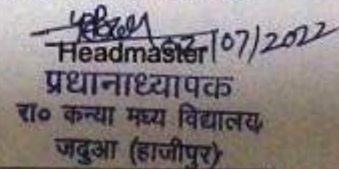 02/07/2022
Headmaster
प्रधानाध्यापक
रा० कन्या मध्य विद्यालय
जढुआ (हाजीपुर)